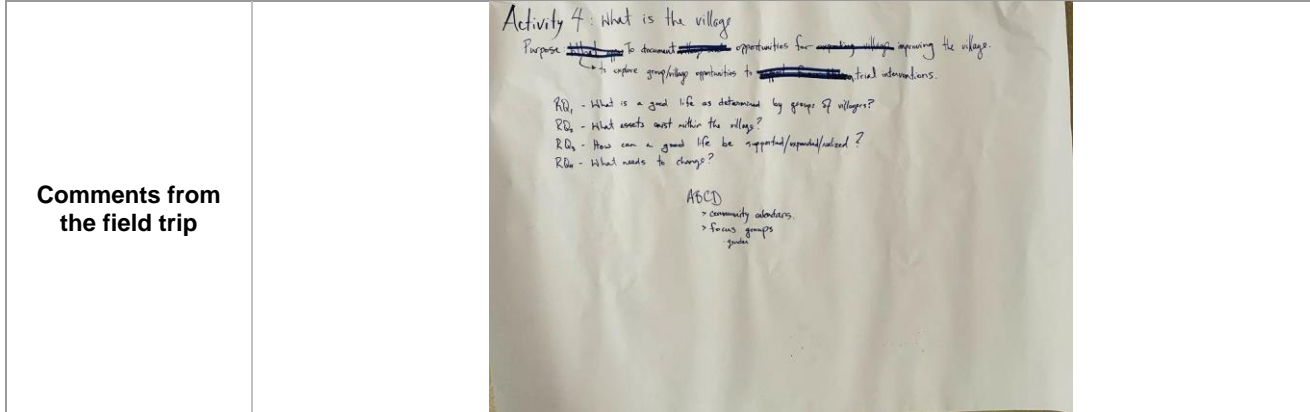 Comments from
the field trip
Activity 4: What is the village
Purpose: To document opportunities for improving the village.
to explore group/village opportunities to trial interventions.
RQ1 - What is a good life as determined by groups of villagers?
RQ2 - What assets exist within the village?
RQ3 - How can a good life be supported/expanded/realized?
RQ4 - What needs to change?
ABCD
> community calendars.
> focus groups